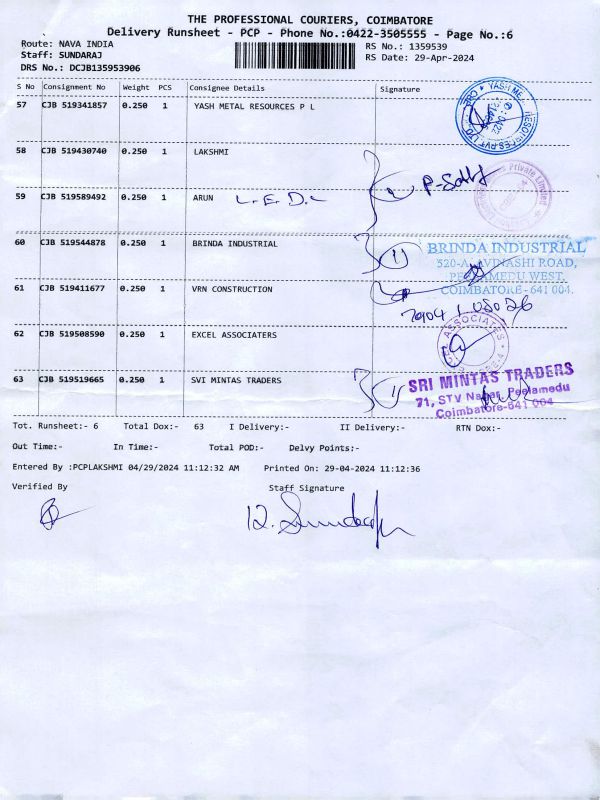 THE PROFESSIONAL COURIERS, COIMBATORE
Delivery Runsheet - PCP - Phone No.:0422-3505555 - Page No.:6
Route: NAVA INDIA
RS No.: 1359539
Staff: SUNDARAJ
RS Date: 29-Apr-2024
DRS No.: DCJB135953906
S No Consignment No Weight PCS Consignee Details Signature
57 CJB 519341857 0.250 1 YASH METAL RESOURCES P L
58 CJB 519430740 0.250 1 LAKSHMI
59 CJB 519589492 0.250 1 ARUN L.E.D.L
60 CJB 519544878 0.250 1 BRINDA INDUSTRIAL
BRINDA INDUSTRIAL
320-A, AVINASHI ROAD,
PEELAMEDU WEST,
COIMBATORE - 641 004.
61 CJB 519411677 0.250 1 VRN CONSTRUCTION
62 CJB 519508590 0.250 1 EXCEL ASSOCIATERS
63 CJB 519519665 0.250 1 SVI MINTAS TRADERS
SRI MINTAS TRADERS
71, STV Nagar, Peelamedu
Coimbatore-641 004
Tot. Runsheet:- 6 Total Dox:- 63 I Delivery:- II Delivery:- RTN Dox:-
Out Time:- In Time:- Total POD:- Delvy Points:-
Entered By :PCPLAKSHMI 04/29/2024 11:12:32 AM Printed On: 29-04-2024 11:12:36
Verified By Staff Signature